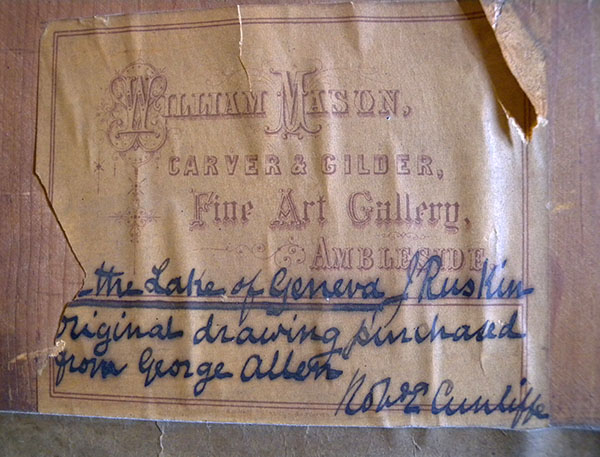 WILLIAM MASON,
CARVER & GILDER,
Fine Art Gallery,
AMBLESIDE
- the Lake of Geneva J Ruskin
original drawing purchased
from George Allen
Robt Cunliffe